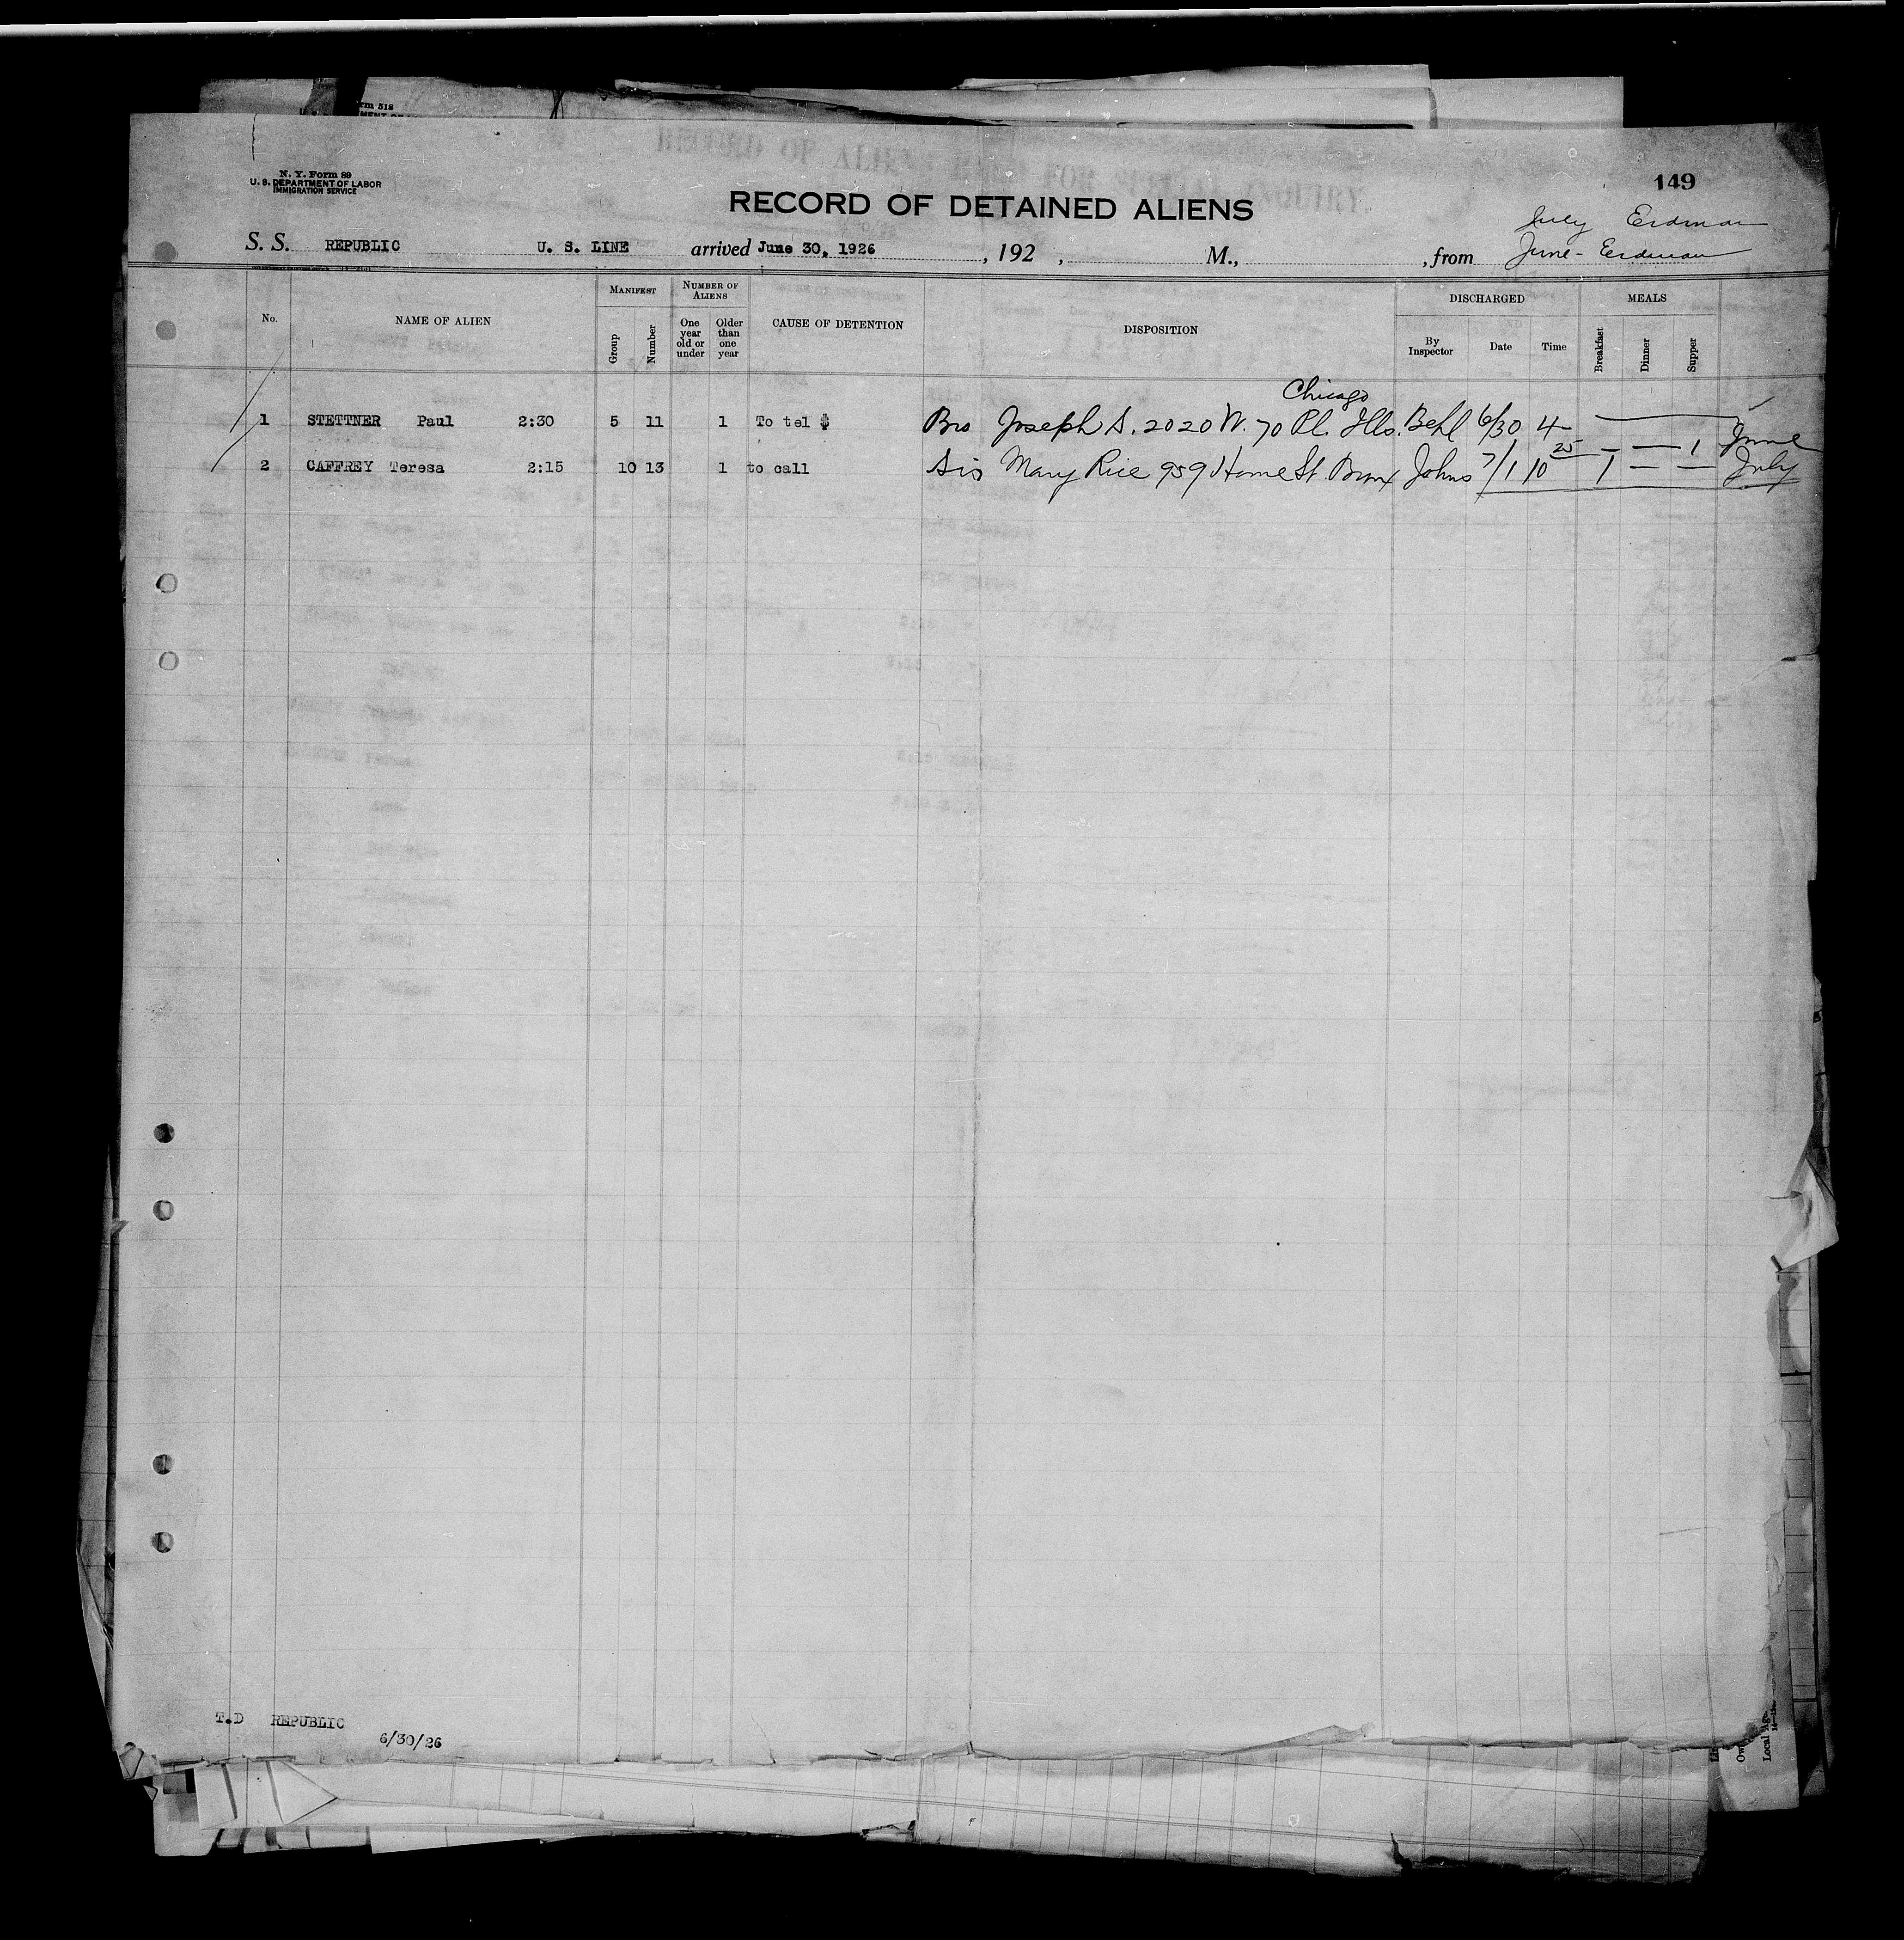 149
N. Y. Form 89
U. S. DEPARTMENT OF LABOR
IMMIGRATION SERVICE
RECORD OF DETAINED ALIENS
July Erdman
S. S. REPUBLIC U. S. LINE arrived June 30, 1926, 192 , M., , from June - Erdman
No. NAME OF ALIEN MANIFEST Group Number NUMBER OF ALIENS One year old or under Older than one year CAUSE OF DETENTION DISPOSITION DISCHARGED By Inspector Date Time MEALS Breakfast Dinner Supper
Chicago
1 STETTNER Paul 2:30 5 11 1 To tel $ Bro Joseph S. 2020 W. 70 Pl. Ills. Behl 6/30 4- — — 1 June
2 CAFFREY Teresa 2:15 10 13 1 to call Sis Mary Rice 959 Home St Bronx Johns 7/1 10 25 1 — — July
T.D REPUBLIC
6/30/26